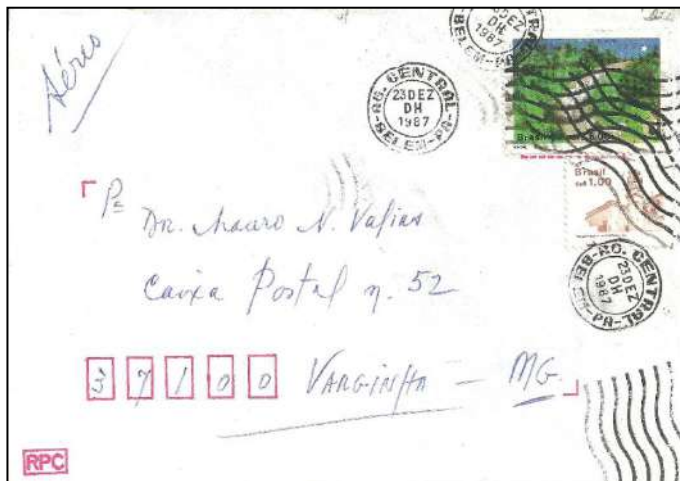 Aéreo
AG. CENTRAL
23 DEZ
DH
1987
BELEM-PA
AG. CENTRAL
23 DEZ
DH
1987
BELEM-PA
Brasil
Brasil
cz$ 1,00
AG. CENTRAL
23 DEZ
DH
1987
BELEM-PA
Pª
Dr. Mauro N. Valias
Caixa Postal n. 52
37100 VARGINHA - MG
RPC